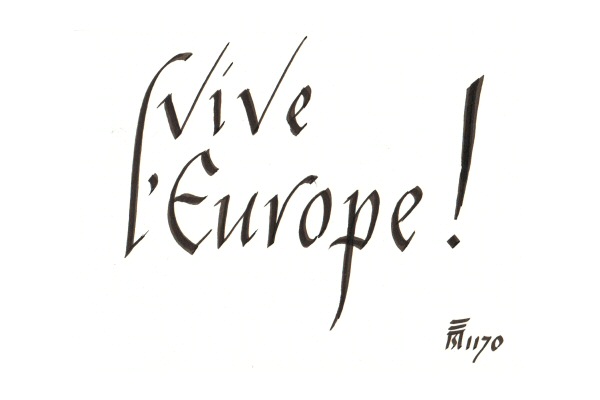 Vive
l'Europe !
1170